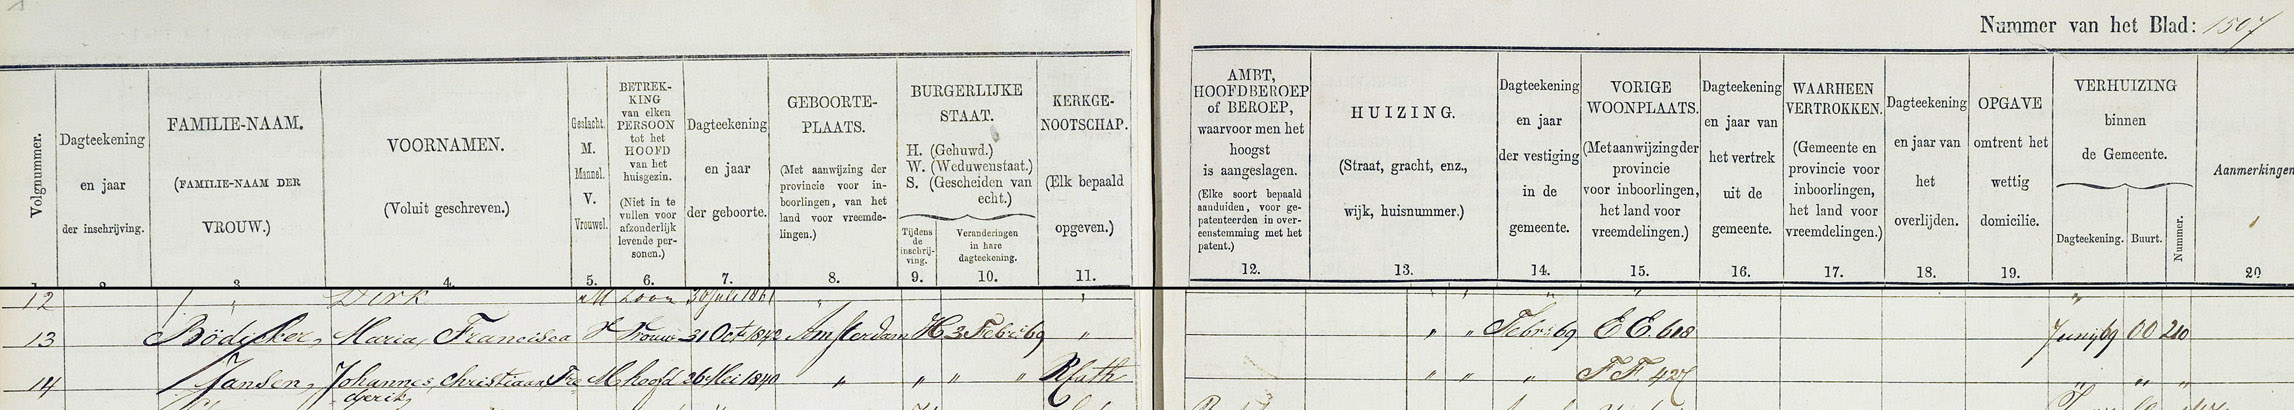 Nummer van het Blad: 1507
Volgnummer.
Dagteekening
en jaar
der inschrijving.
FAMILIE-NAAM.
(FAMILIE-NAAM DER
VROUW.)
3.
VOORNAMEN.
(Voluit geschreven.)
4.
Geslacht.
M.
Mannel.
V.
Vrouwel.
5.
BETREK-
KING
van elken
PERSOON
tot het
HOOFD
van het
huisgezin.
(Niet in te
vullen voor
afzonderlijk
levende per-
sonen.)
6.
Dagteekening
en jaar
der geboorte.
7.
GEBOORTE-
PLAATS.
(Met aanwijzing der
provincie voor in-
boorlingen, van het
land voor vreemde-
lingen.)
8.
BURGERLIJKE
STAAT.
H. (Gehuwd.)
W. (Weduwenstaat.)
S. (Gescheiden van
echt.)
Tijdens
de
inschrij-
ving.
9.
Veranderingen
in hare
dagteekening.
10.
KERKGE-
NOOTSCHAP.
(Elk bepaald
opgeven.)
11.
AMBT,
HOOFDBEROEP
of BEROEP,
waarvoor men het
hoogst
is aangeslagen.
(Elke soort bepaald
aanduiden, voor ge-
patenteerden in over-
eenstemming met het
patent.)
12.
HUIZING.
(Straat, gracht, enz.,
wijk, huisnummer.)
13.
Dagteekening
en jaar
der vestiging
in de
gemeente.
14.
VORIGE
WOONPLAATS.
(Met aanwijzing der
provincie
voor inboorlingen,
het land voor
vreemdelingen.)
15.
Dagteekening
en jaar van
het vertrek
uit de
gemeente.
16.
WAARHEEN
VERTROKKEN.
(Gemeente en
provincie voor
inboorlingen,
het land voor
vreemdelingen.)
17.
Dagteekening
en jaar van
het
overlijden.
18.
OPGAVE
omtrent het
wettig
domicilie.
19.
VERHUIZING
binnen
de Gemeente.
Dagteekening. Buurt. Nummer.
Aanmerkingen
20
12 " Dirk M Zoon 30 Juli 1861 "
13 Bödicker, Maria, Francisca V Vrouw 31 Oct 1842 Amsterdam H 3 Febr: 69 " " " Febr: 69 EE. 608 Junij 69 OO 210
14 Jansen, Johannes, Christiaan Fre M hoofd 26 Mei 1840 " " " " RKath " " " FF. 427 " " "
derik